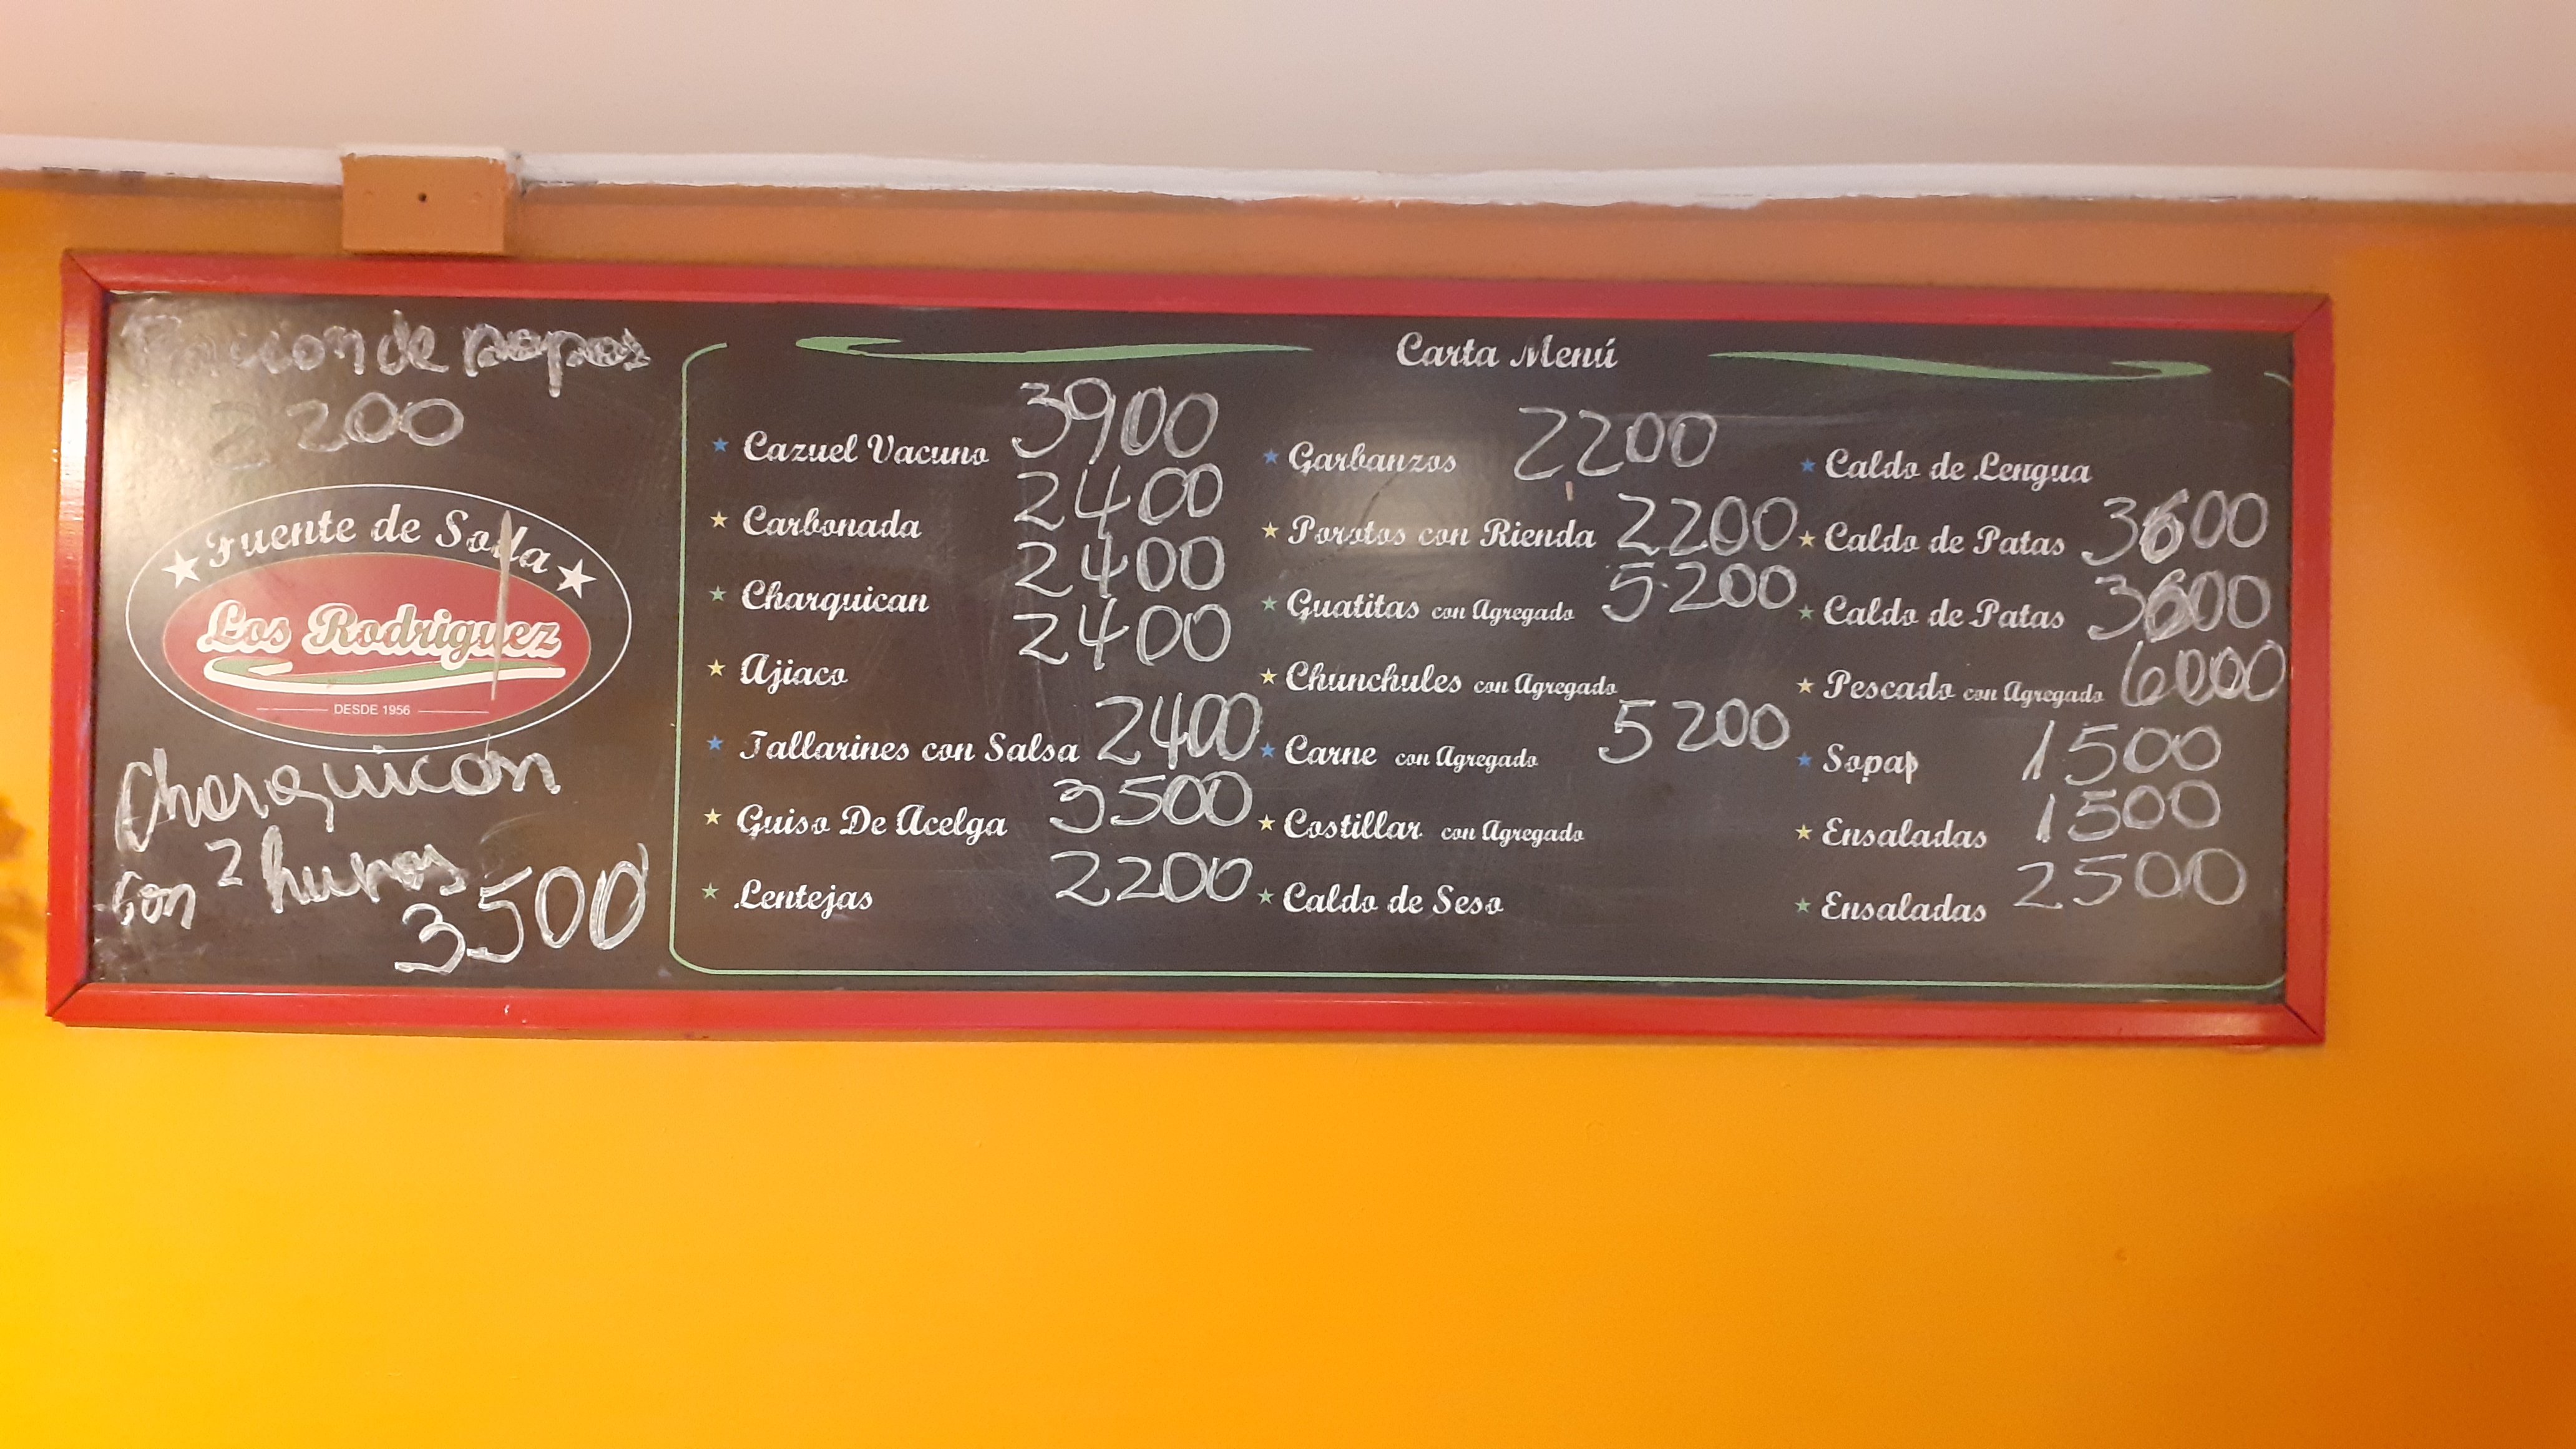 Porcion de papas
2200
Fuente de Soda
Los Rodriguez
DESDE 1956
Charquicán
con 2 huevos
3500
Carta Menú
Cazuel Vacuno 3900
Carbonada 2400
Charquican 2400
Ajiaco 2400
Tallarines con Salsa 2400
Guiso De Acelga 3500
Lentejas 2200
Garbanzos 2200
Porotos con Rienda 2200
Guatitas con Agregado 5200
Chunchules con Agregado
Carne con Agregado 5200
Costillar con Agregado
Caldo de Seso
Caldo de Lengua
Caldo de Patas 3600
Caldo de Patas 3600
Pescado con Agregado 6000
Sopap 1500
Ensaladas 1500
Ensaladas 2500